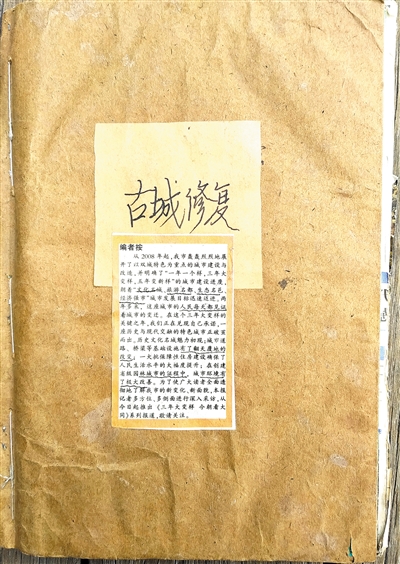 古城修复
编者按
从2008年起，我市轰轰烈烈地展
开了以双城特色为重点的城市建设与
改造，并明确了“一年一个样，三年大
变样，五年变新样”的城市建设进度，
朝着“文化名城、旅游名都、生态名邑、
经济强市”城市发展目标迅速迈进，两
年多来，这座城市的人民每天都见证
着城市的变迁。在这个三年大变样的
关键之年，我们正在兑现自己承诺，一
座历史与现代交融的特色城市正破茧
而出，历史文化名城魅力初现；城市道
路、桥梁等基础设施有了翻天覆地的
改变；一大批保障性住房建设确保了
人民生活水平的大幅度提升；在创建
省级园林城市的征程中，城市环境有
了极大改善。为了使广大读者全面透
彻地了解我市的新变化、新面貌，本报
记者多方位、多侧面进行深入采访，从
今日起推出《三年大变样 今朝看大
同》系列报道，敬请关注。